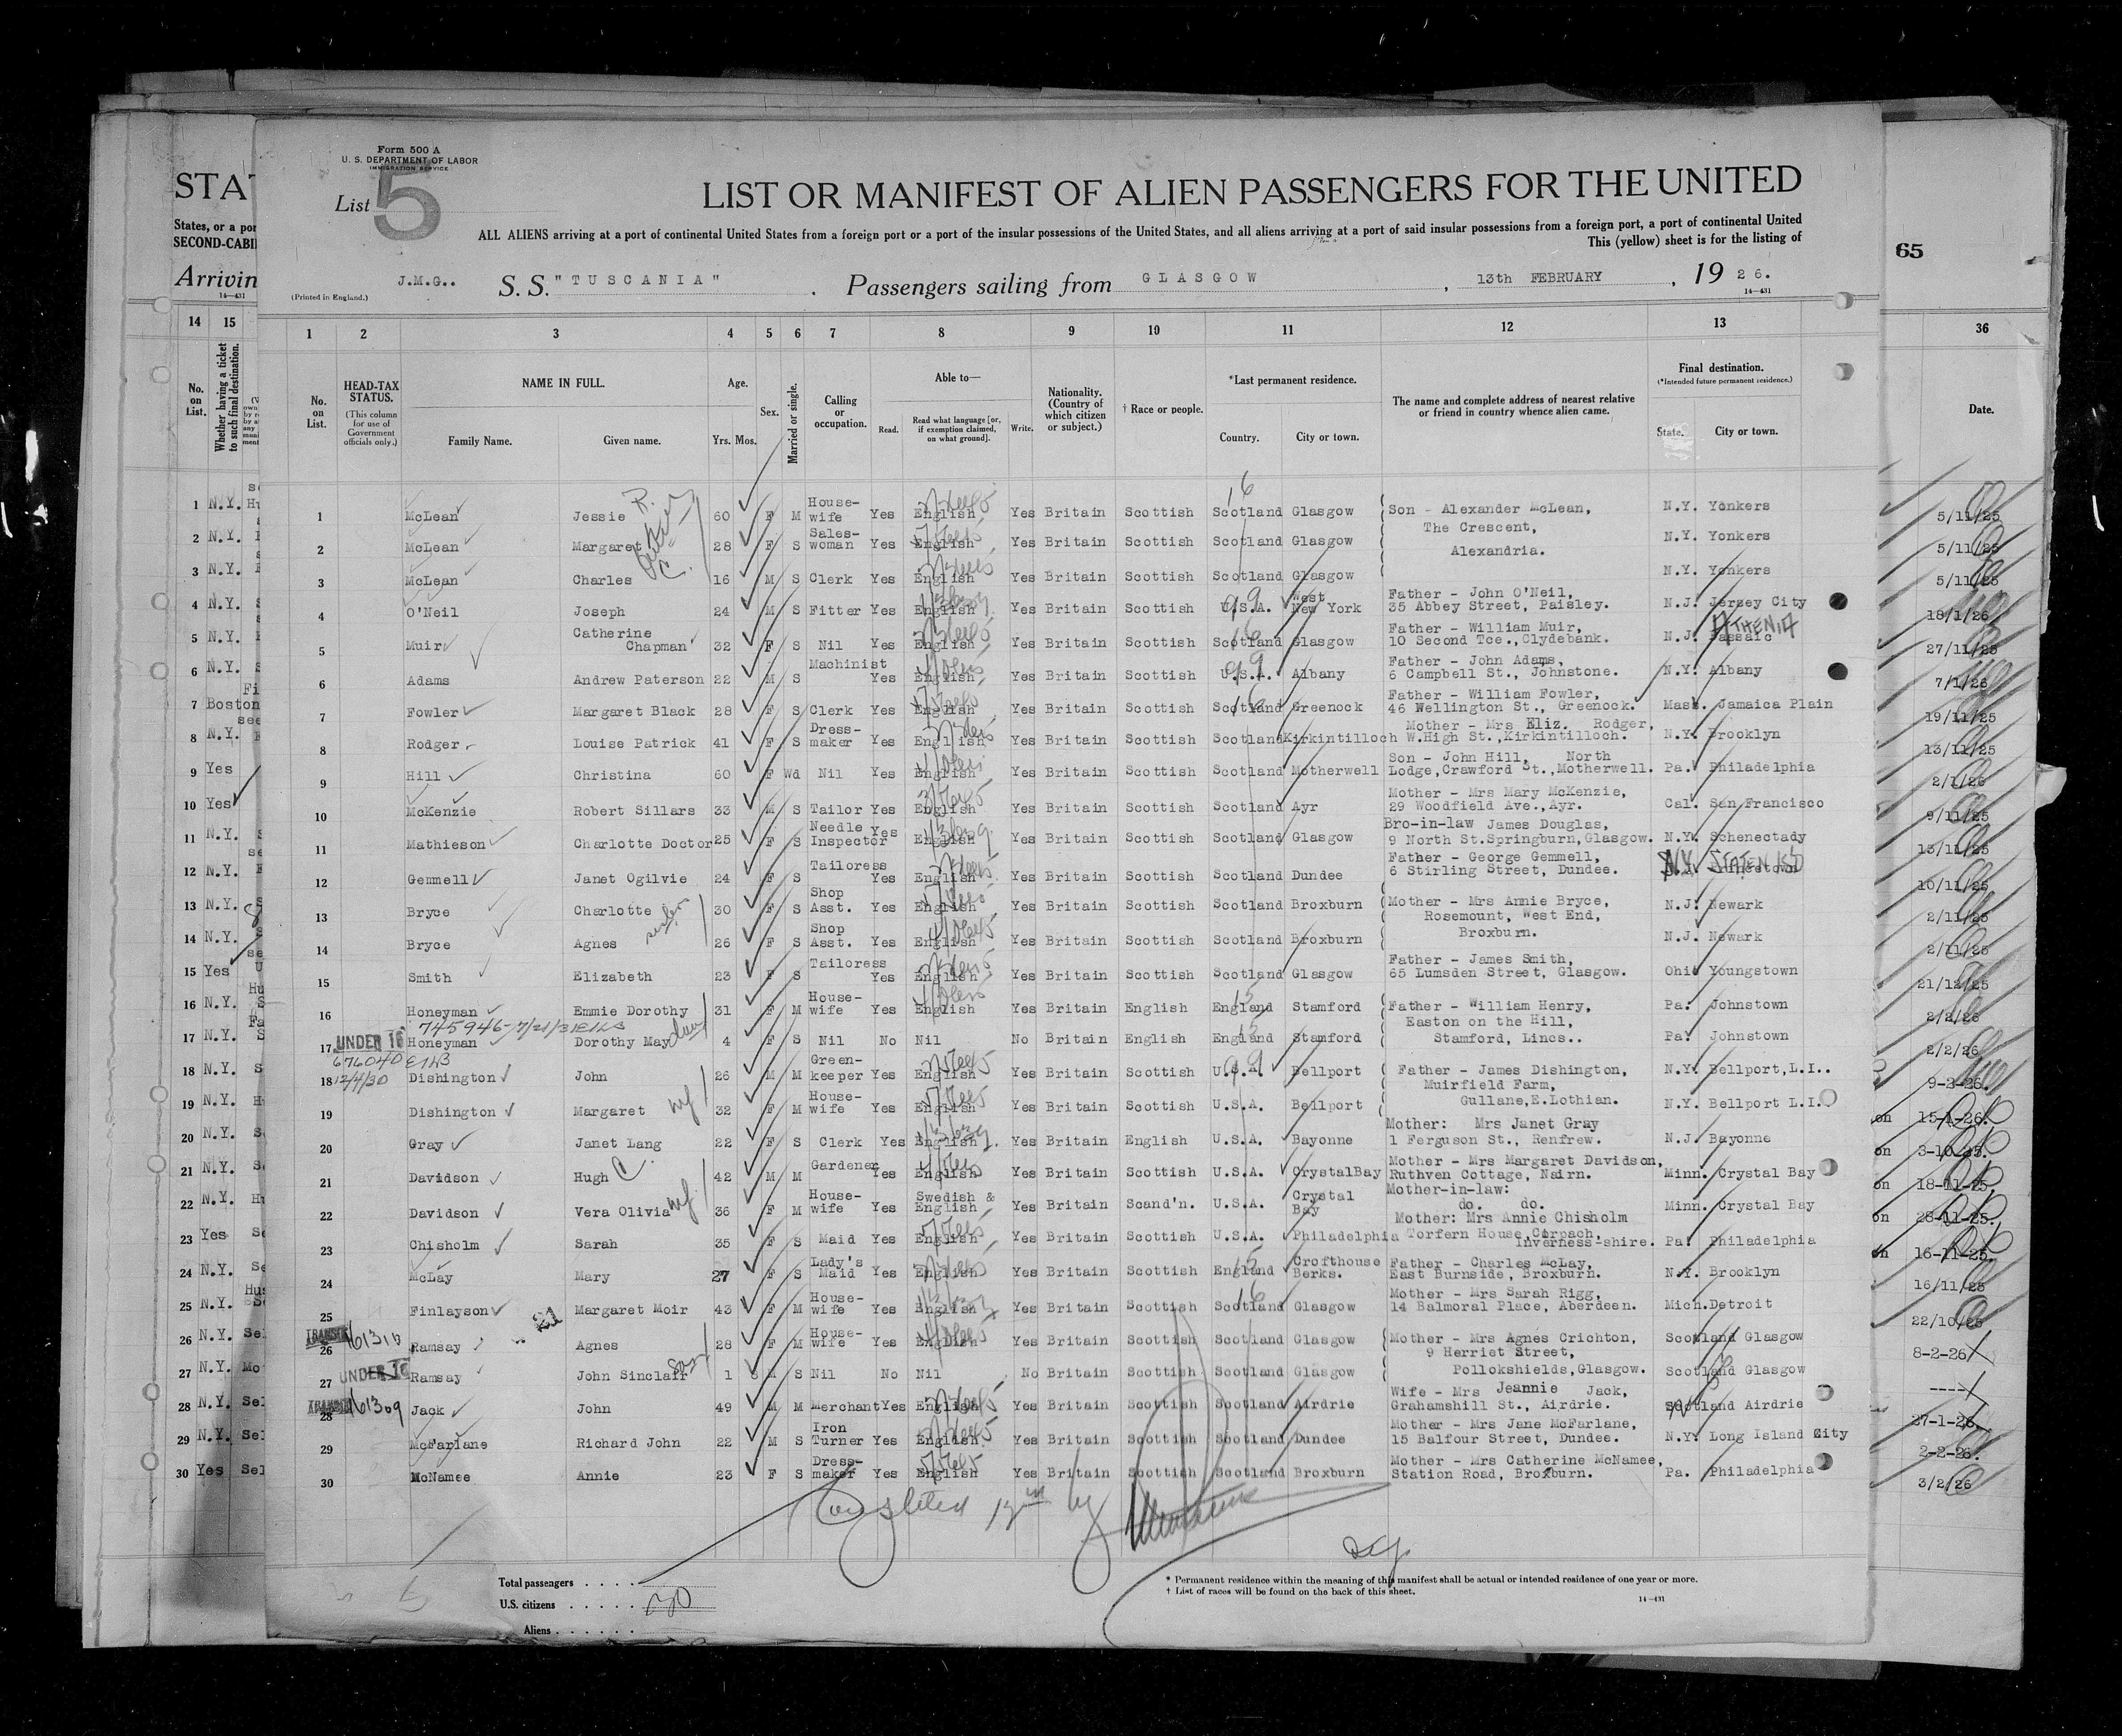 Form 500 A
U. S. DEPARTMENT OF LABOR
IMMIGRATION SERVICE
List 5
LIST OR MANIFEST OF ALIEN PASSENGERS FOR THE UNITED
ALL ALIENS arriving at a port of continental United States from a foreign port or a port of the insular possessions of the United States, and all aliens arriving at a port of said insular possessions from a foreign port, a port of continental United
This (yellow) sheet is for the listing of
J.M.G.. S. S. "TUSCANIA" . Passengers sailing from GLASGOW , 13th FEBRUARY , 19 26.
(Printed in England.) 14—431
1 2 3 4 5 6 7 8 9 10 11 12 13
No. on List.
HEAD-TAX STATUS.
(This column for use of Government officials only.)
NAME IN FULL.
Family Name. Given name.
Age.
Yrs. Mos.
Sex.
Married or single.
Calling or occupation.
Able to—
Read. Read what language [or, if exemption claimed, on what ground]. Write.
Nationality. (Country of which citizen or subject.)
† Race or people.
*Last permanent residence.
Country. City or town.
The name and complete address of nearest relative or friend in country whence alien came.
Final destination.
(*Intended future permanent residence.)
State. City or town.
1 McLean Jessie 60 F M House-wife Yes English Yes Britain Scottish Scotland Glasgow Son - Alexander McLean, N.Y. Yonkers
2 McLean Margaret 28 F S Sales-woman Yes English Yes Britain Scottish Scotland Glasgow The Crescent, N.Y. Yonkers
3 McLean Charles 16 M S Clerk Yes English Yes Britain Scottish Scotland Glasgow Alexandria. N.Y. Yonkers
4 O'Neil Joseph 24 M S Fitter Yes English Yes Britain Scottish U.S.A. West New York Father - John O'Neil, 35 Abbey Street, Paisley. N.J. Jersey City
5 Muir Catherine Chapman 32 F S Nil Yes English Yes Britain Scottish Scotland Glasgow Father - William Muir, 10 Second Tce., Clydebank. N.J. Passaic ATHENIA
6 Adams Andrew Paterson 22 M S Machinist Yes English Yes Britain Scottish U.S.A. Albany Father - John Adams, 6 Campbell St., Johnstone. N.Y. Albany
7 Fowler Margaret Black 28 F S Clerk Yes English Yes Britain Scottish Scotland Greenock Father - William Fowler, 46 Wellington St., Greenock. Mass. Jamaica Plain
8 Rodger Louise Patrick 41 F S Dress-maker Yes English Yes Britain Scottish Scotland Kirkintilloch Mother - Mrs Eliz. Rodger, W.High St.,Kirkintilloch. N.Y. Brooklyn
9 Hill Christina 60 F Wd Nil Yes English Yes Britain Scottish Scotland Motherwell Son - John Hill, North Lodge,Crawford St.,Motherwell. Pa. Philadelphia
10 McKenzie Robert Sillars 33 M S Tailor Yes English Yes Britain Scottish Scotland Ayr Mother - Mrs Mary McKenzie, 29 Woodfield Ave.,Ayr. Cal. San Francisco
11 Mathieson Charlotte Doctor 25 F S Needle Inspector Yes English Yes Britain Scottish Scotland Glasgow Bro-in-law James Douglas, 9 North St.Springburn,Glasgow. N.Y. Schenectady
12 Gemmell Janet Ogilvie 24 F S Tailoress Yes English Yes Britain Scottish Scotland Dundee Father - George Gemmell, 6 Stirling Street, Dundee. N.Y. STATEN ISD
13 Bryce Charlotte sisters 30 F S Shop Asst. Yes English Yes Britain Scottish Scotland Broxburn Mother - Mrs Annie Bryce, N.J. Newark
14 Bryce Agnes 26 F S Shop Asst. Yes English Yes Britain Scottish Scotland Broxburn Rosemount, West End, Broxburn. N.J. Newark
15 Smith Elizabeth 23 F S Tailoress Yes English Yes Britain Scottish Scotland Glasgow Father - James Smith, 65 Lumsden Street, Glasgow. Ohio Youngstown
16 Honeyman Emmie Dorothy 31 F M House-wife Yes English Yes Britain English England Stamford Father - William Henry, Pa. Johnstown
745946-7/21/31
17 UNDER 16 Honeyman Dorothy May 4 F S Nil No Nil No Britain English England Stamford Easton on the Hill, Stamford, Lincs.. Pa. Johnstown
676040
18 12/4/30 Dishington John 26 M M Green-keeper Yes English Yes Britain Scottish U.S.A. Bellport Father - James Dishington, N.Y. Bellport,L.I..
19 Dishington Margaret wf 32 F M House-wife Yes English Yes Britain Scottish U.S.A. Bellport Muirfield Farm, Gullane,E.Lothian. N.Y. Bellport L.I..
20 Gray Janet Lang 22 F S Clerk Yes English Yes Britain English U.S.A. Bayonne Mother: Mrs Janet Gray 1 Ferguson St., Renfrew. N.J. Bayonne
21 Davidson Hugh C. 42 M M Gardener Yes English Yes Britain Scottish U.S.A. CrystalBay Mother - Mrs Margaret Davidson, Ruthven Cottage, Nairn. Minn. Crystal Bay
22 Davidson Vera Olivia wf. 36 F M House-wife Yes Swedish & English Yes Britain Scand'n. U.S.A. Crystal Bay Mother-in-law: do. do. Minn. Crystal Bay
23 Chisholm Sarah 35 F S Maid Yes English Yes Britain Scottish U.S.A. Philadelphia Mother: Mrs Annie Chisholm Torfern House,Corpach, Inverness-shire. Pa. Philadelphia
24 McLay Mary 27 F S Lady's Maid Yes English Yes Britain Scottish England Crofthouse Berks. Father - Charles McLay, East Burnside, Broxburn. N.Y. Brooklyn
25 Finlayson Margaret Moir 43 F M House-wife Yes English Yes Britain Scottish Scotland Glasgow Mother - Mrs Sarah Rigg, 14 Balmoral Place, Aberdeen. Mich. Detroit
26 TRANSIT Ramsay Agnes 28 F M House-wife Yes English Yes Britain Scottish Scotland Glasgow Mother - Mrs Agnes Crichton, Scotland Glasgow
27 UNDER 16 Ramsay John Sinclair son 1 M S Nil No Nil No Britain Scottish Scotland Glasgow 9 Herriet Street, Pollokshields,Glasgow. Scotland Glasgow
28 TRANSIT 161309 Jack John 49 M M Merchant Yes English Yes Britain Scottish Scotland Airdrie Wife - Mrs Jeannie Jack, Grahamshill St., Airdrie. Scotland Airdrie
29 McFarlane Richard John 22 M S Iron Turner Yes English Yes Britain Scottish Scotland Dundee Mother - Mrs Jane McFarlane, 15 Balfour Street, Dundee. N.Y. Long Island City
30 McNamee Annie 23 F S Dress-maker Yes English Yes Britain Scottish Scotland Broxburn Mother - Mrs Catherine McNamee, Station Road, Broxburn. Pa. Philadelphia
Total passengers . . . .
U.S. citizens . . . . .
Aliens . . . . . .
30
* Permanent residence within the meaning of this manifest shall be actual or intended residence of one year or more.
† List of races will be found on the back of this sheet.
14—431
STAT
States, or a por
SECOND-CABI
Arrivin
14—431
14 15
No. on List.
Whether having a ticket to such final destination.
1 N.Y.
2 N.Y.
3 N.Y.
4 N.Y.
5 N.Y.
6 N.Y.
7 Boston
8 N.Y.
9 Yes
10 Yes
11 N.Y.
12 N.Y.
13 N.Y.
14 N.Y.
15 Yes
16 N.Y.
17 N.Y.
18 N.Y.
19 N.Y.
20 N.Y.
21 N.Y.
22 N.Y.
23 Yes
24 N.Y.
25 N.Y.
26 N.Y. Sel
27 N.Y. Mo
28 N.Y. Sel
29 N.Y. Sel
30 Yes Sel
65
36
Date.
5/11/25
5/11/25
5/11/25
18/1/26
27/11/25
7/1/26
19/11/25
13/11/25
2/1/26
9/11/25
13/11/25
10/11/25
2/11/25
2/11/25
21/12/25
2/2/26
2/2/26
9-2-26.
on 15-1-26.
on 3-10-25.
on 18-11-25.
on 28-11-25.
on 16-11-25.
16/11/25
22/10/25
8-2-26
----
27-1-26.
2-2-26.
3/2/26